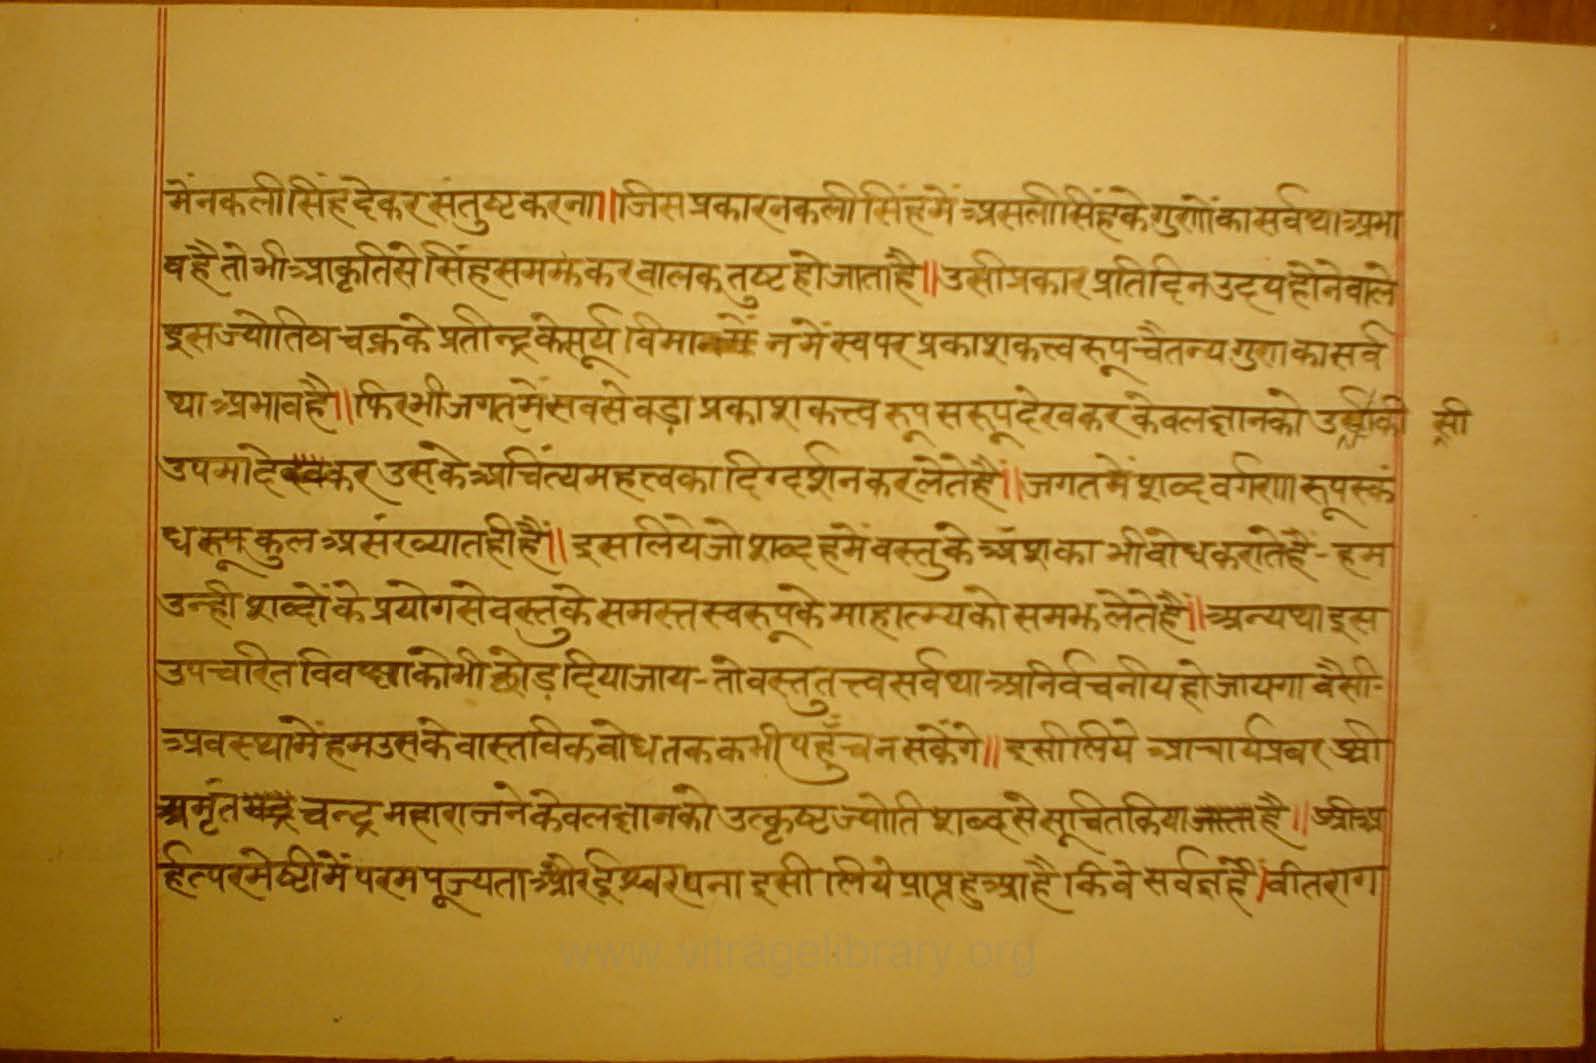 में नकली सिंह देकर संतुष्ट करना॥ जिस प्रकार नकली सिंह में असली सिंह के गुणों का सर्वथा अभा
व है तो भी आकृति से सिंह समझ कर वालक तुष्ट हो जाता है॥ उसी प्रकार प्रतिदिन उदय होने वाले
इस ज्योतिष चक्र के प्रतीन्द्र के सूर्य विमा न में स्वपर प्रकाशकत्त्व रूप चैतन्य गुण का सर्व
था अभाव है॥ फिर भी जगत में सवसे वड़ा प्रकाशकत्त्व रूप सरूप देखकर केवलज्ञान को उसी की सी
उपमा देकर उसके अचिंत्य महत्त्व का दिग्दर्शन कर लेते हैं॥ जगत में शव्द वर्गणा रूप स्कं
ध रूप कुल असंख्यात ही हैं॥ इसलिये जो शव्द हमें वस्तु के अंश का भी वोध कराते हैं - हम
उन्ही शव्दों के प्रयोग से वस्तु के समस्त स्वरूप के माहात्म्य को समझ लेते हैं॥ अन्यथा इस
उपचरित विवक्षा को भी छोड़ दिया जाय - तो वस्तु तत्त्व सर्वथा अनिर्वचनीय हो जायगा वैसी-
अवस्था में हम उसके वास्तविक वोध तक कभी पहुँच न सकेंगे॥ इसीलिये आचार्यप्रवर श्री
अमृत चन्द्र महाराज ने केवलज्ञान को उत्कृष्ट ज्योति शव्द से सूचित किया है॥ श्री अ
र्हत्परमेष्टी में परम पूज्यता और ईश्वरपना इसी लिये प्राप्त हुआ है कि वे सर्वज्ञ हैं। वीतराग
www.vitragelibrary.org